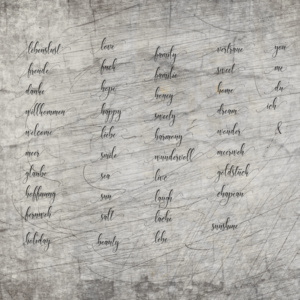 lebenslust
freude
danke
willkommen
welcome
meer
glaube
hoffnung
fernweh
holiday
love
buch
hope
happy
liebe
smile
sea
sun
salt
beauty
family
familie
honey
sweety
harmony
wundervoll
live
laugh
lache
lebe
vertraue
sweet
home
dream
wonder
meerweh
goldstück
chapeau
sunshine
you
me
du
ich
&